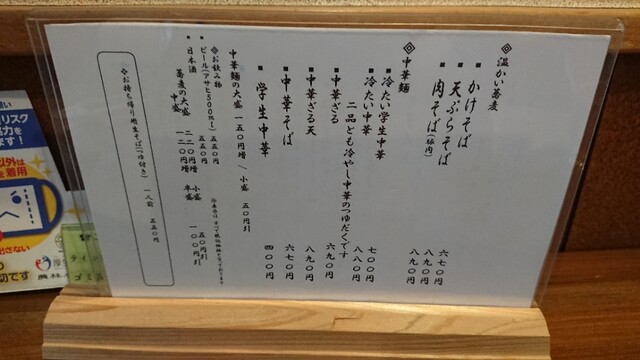 ◎温かい蕎麦
■かけそば 六七〇円
■天ぷらそば 八九〇円
■肉そば(豚肉) 八九〇円
◎中華麺
■冷たい学生中華 七〇〇円
■冷たい中華 八八〇円
二品ども冷やし中華のつゆだくです
■中華ざる 六九〇円
■中華ざる天 八九〇円
■中華そば 六七〇円
■学生中華 四〇〇円
中華麺の大盛 一五〇円増/小盛 五〇円引
◎お飲み物
■ビール(アサヒ500ml) 五五〇円
■日本酒 五五〇円
蕎麦の大盛 二二〇円増 小盛 五〇円引
中盛 一二〇円増 半盛 一〇〇円引
◎お持ち帰り地生そば(つゆ付き) 一人前 五五〇円
リスク
を着用
出さない
切です
農林